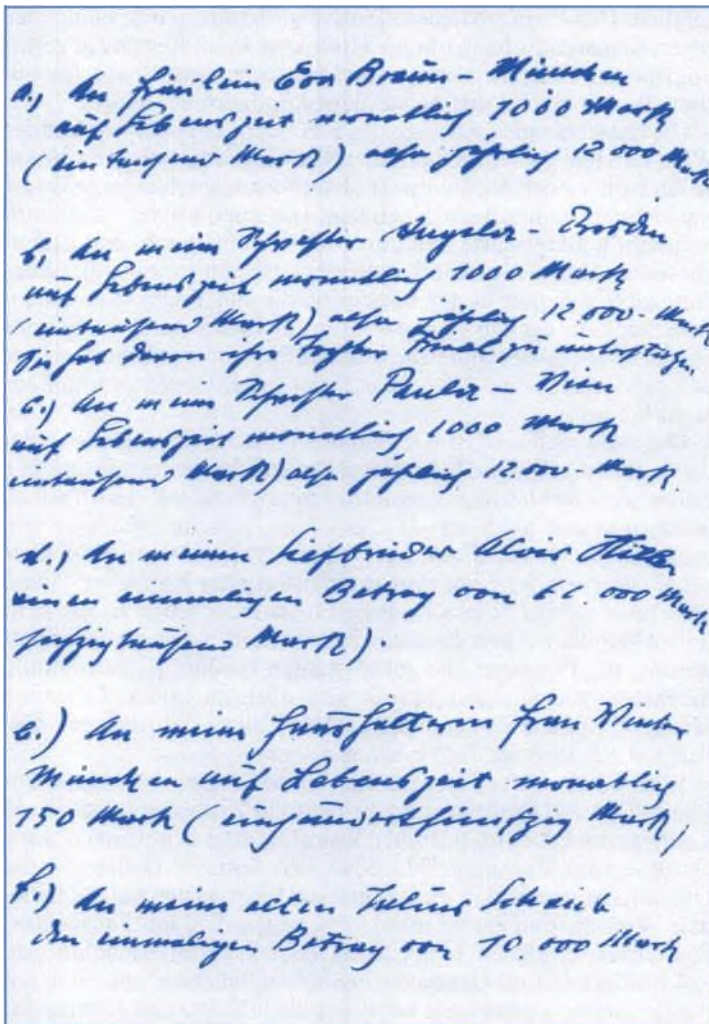 a.) An Fräulein Eva Braun – München
auf Lebenszeit monatlich 1000 Mark
(eintausend Mark) also jährlich 12 000 Mark
b.) An meine Schwester Angela – Dresden
auf Lebenszeit monatlich 1000 Mark
(eintausend Mark) also jährlich 12 000 – Mark
Sie hat davon ihre Tochter Friedl zu unterstützen
c.) An meine Schwester Paula – Wien
auf Lebenszeit monatlich 1000 Mark
eintausend Mark) also jährlich 12.000 – Mark
d.) An meinen Stiefbruder Alois Hitler
einen einmaligen Betrag von 60.000 Mark
sechzigtausend Mark).
e.) An meine Haushälterin Frau Winter
München auf Lebenszeit monatlich
150 Mark (einhundertfünfzig Mark)
f.) An meinen alten Julius Schaub
den einmaligen Betrag von 10.000 Mark